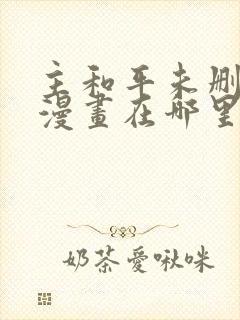 主和平未删
漫畫在哪里
奶茶愛啾咪